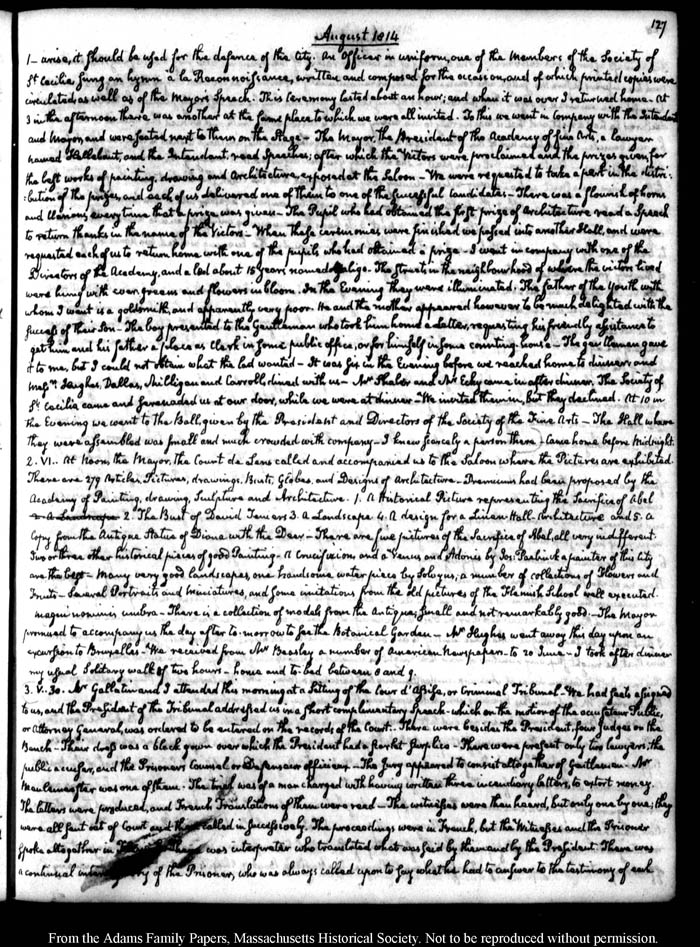 127
August 1814
1— arise, it should be used for the defence of the City. An Officer in uniform, one of the Members of the Society of
St Cecilia sung an hymn à la Reconnoissance, written and composed for the occasion, and of which printed copies were
circulated as well as of the Mayor's Speech. This Ceremony lasted about an hour; and when it was over I returned home— At
3 in the afternoon there was another at the same place to which we were all invited. To this we went in company with the Intendant
and Mayor, and were seated next to them on the Stage— The Mayor, the President of the Academy of fine Arts, a lawyer
named Hellebaut, and the Intendant, read Speeches; after which the Victors were proclaimed and the prizes given, for
the best works of painting, drawing and Architecture, exposed at the Saloon— We were requested to take a part in the distri:
:bution of the prizes, and each of us delivered one of them to one of the successful candidates— There was a flourish of horns
and Clarions every time that a prize was given— The Pupil who had obtained the first prize of Architecture read a Speech
to return thanks in the name of the Victors— When these ceremonies were finished we passed into another Hall, and were
requested each of us to return home with one of the pupils who had obtained a prize— I went in company with one of the
Directors of the Academy, and a lad about 15 years named. The Streets in the neighbourhood of where the victors lived
were hung with evergreens and flowers in bloom. In the Evening they were illuminated. The father of the Youth with
whom I went is a goldsmith, and apparently very poor. He and the mother appeared however to be much delighted with the
success of their Son— The boy presented to the Gentleman who took him home a Letter, requesting his friendly assistance to
get him and his father a place as Clerk in some public office, or for himself in some counting-house— The gentleman gave
it to me, but I could not obtain what the lad wanted— It was six in the Evening before we reached home to dinner; and
Mess'rs Hughes, Dallas, Milligan and Carroll, dined with us— Mr Shaler and Mr came in after dinner. The Society of
St Cecilia came and serenaded us at our door, while we were at dinner— We invited them in, but they declined. At 10 in
the Evening we went to the Ball, given by the President and Directors of the Society of the Fine Arts— The Hall where
they were assembled was small and much crowded with company— I knew scarcely a person there— Came home before Midnight.
2. VI.. At Noon the Mayor, the Count de Lens called and accompanied us to the Saloon where the Pictures are exhibited.
There are 279 Articles, Pictures, drawings, Busts, Globes, and Designs of Architecture— Premiums had been proposed by the
Academy of Painting, drawing, Sculpture and Architecture. 1. A Historical Picture representing the Sacrifice of Abel
2. A Landscape 2. The Bust of David Teniers 3. A Landscape 4. A design for a Linen-Hall. Architecture and 5. a
Copy from the Antique Statue of Diana with the Deer— There are five pictures of the Sacrifice of Abel, all very indifferent.
Two or three other historical pieces of good Painting— A Crucifixion, and a Venus and Adonis by Jos: Paelinck a painter of this City
are the best— Many very good landscapes, one handsome water piece by; a number of collections of Flowers and
Fruits— Several Portraits and Miniatures, and some imitations from the old pictures of the Flemish School well executed—
magni nominis umbra— There is a collection of models from the Antique; small and not remarkably good— The Mayor
promised to accompany us the day after to-morrow to see the Botanical Garden— Mr Hughes went away this day upon an
excursion to Bruxelles— We received from Mr Beasley a number of American Newspapers— to 20 June— I took after dinner
my usual solitary walk of two hours— home and to bed between 8 and 9.
3. V.30. Mr Gallatin and I attended this morning at a Sitting of the Cour d'Assise, or Criminal Tribunal. We had seats assigned
to us, and the President of the Tribunal addressed us in a short complimentary Speech— which on the motion of the accusateur Public,
or Attorney General, was ordered to be entered on the records of the Court. There were besides the President, four judges on the
Bench— Their dress was a black gown over which the President had a scarlet Surplice— There were present only two lawyers; the
public accuser, and the Prisoner's Counsel or Defenseur officieux— The Jury appeared to consist altogether of Gentlemen— Mr
Meulemeester was one of them— The trial was of a man charged with having written three incendiary letters, to extort money.
The letters were produced, and French Translations of them were read— The witnesses were then heard, but only one by one; they
were all sent out of Court and then called in successively. The proceedings were in French, but the Witnesses and the Prisoner
spoke altogether in was interpreter who translated what was said by them and by the President. There was
a continual of the Prisoner, who was always called upon to say what he had to answer to the testimony of each
From the Adams Family Papers, Massachusetts Historical Society. Not to be reproduced without permission.